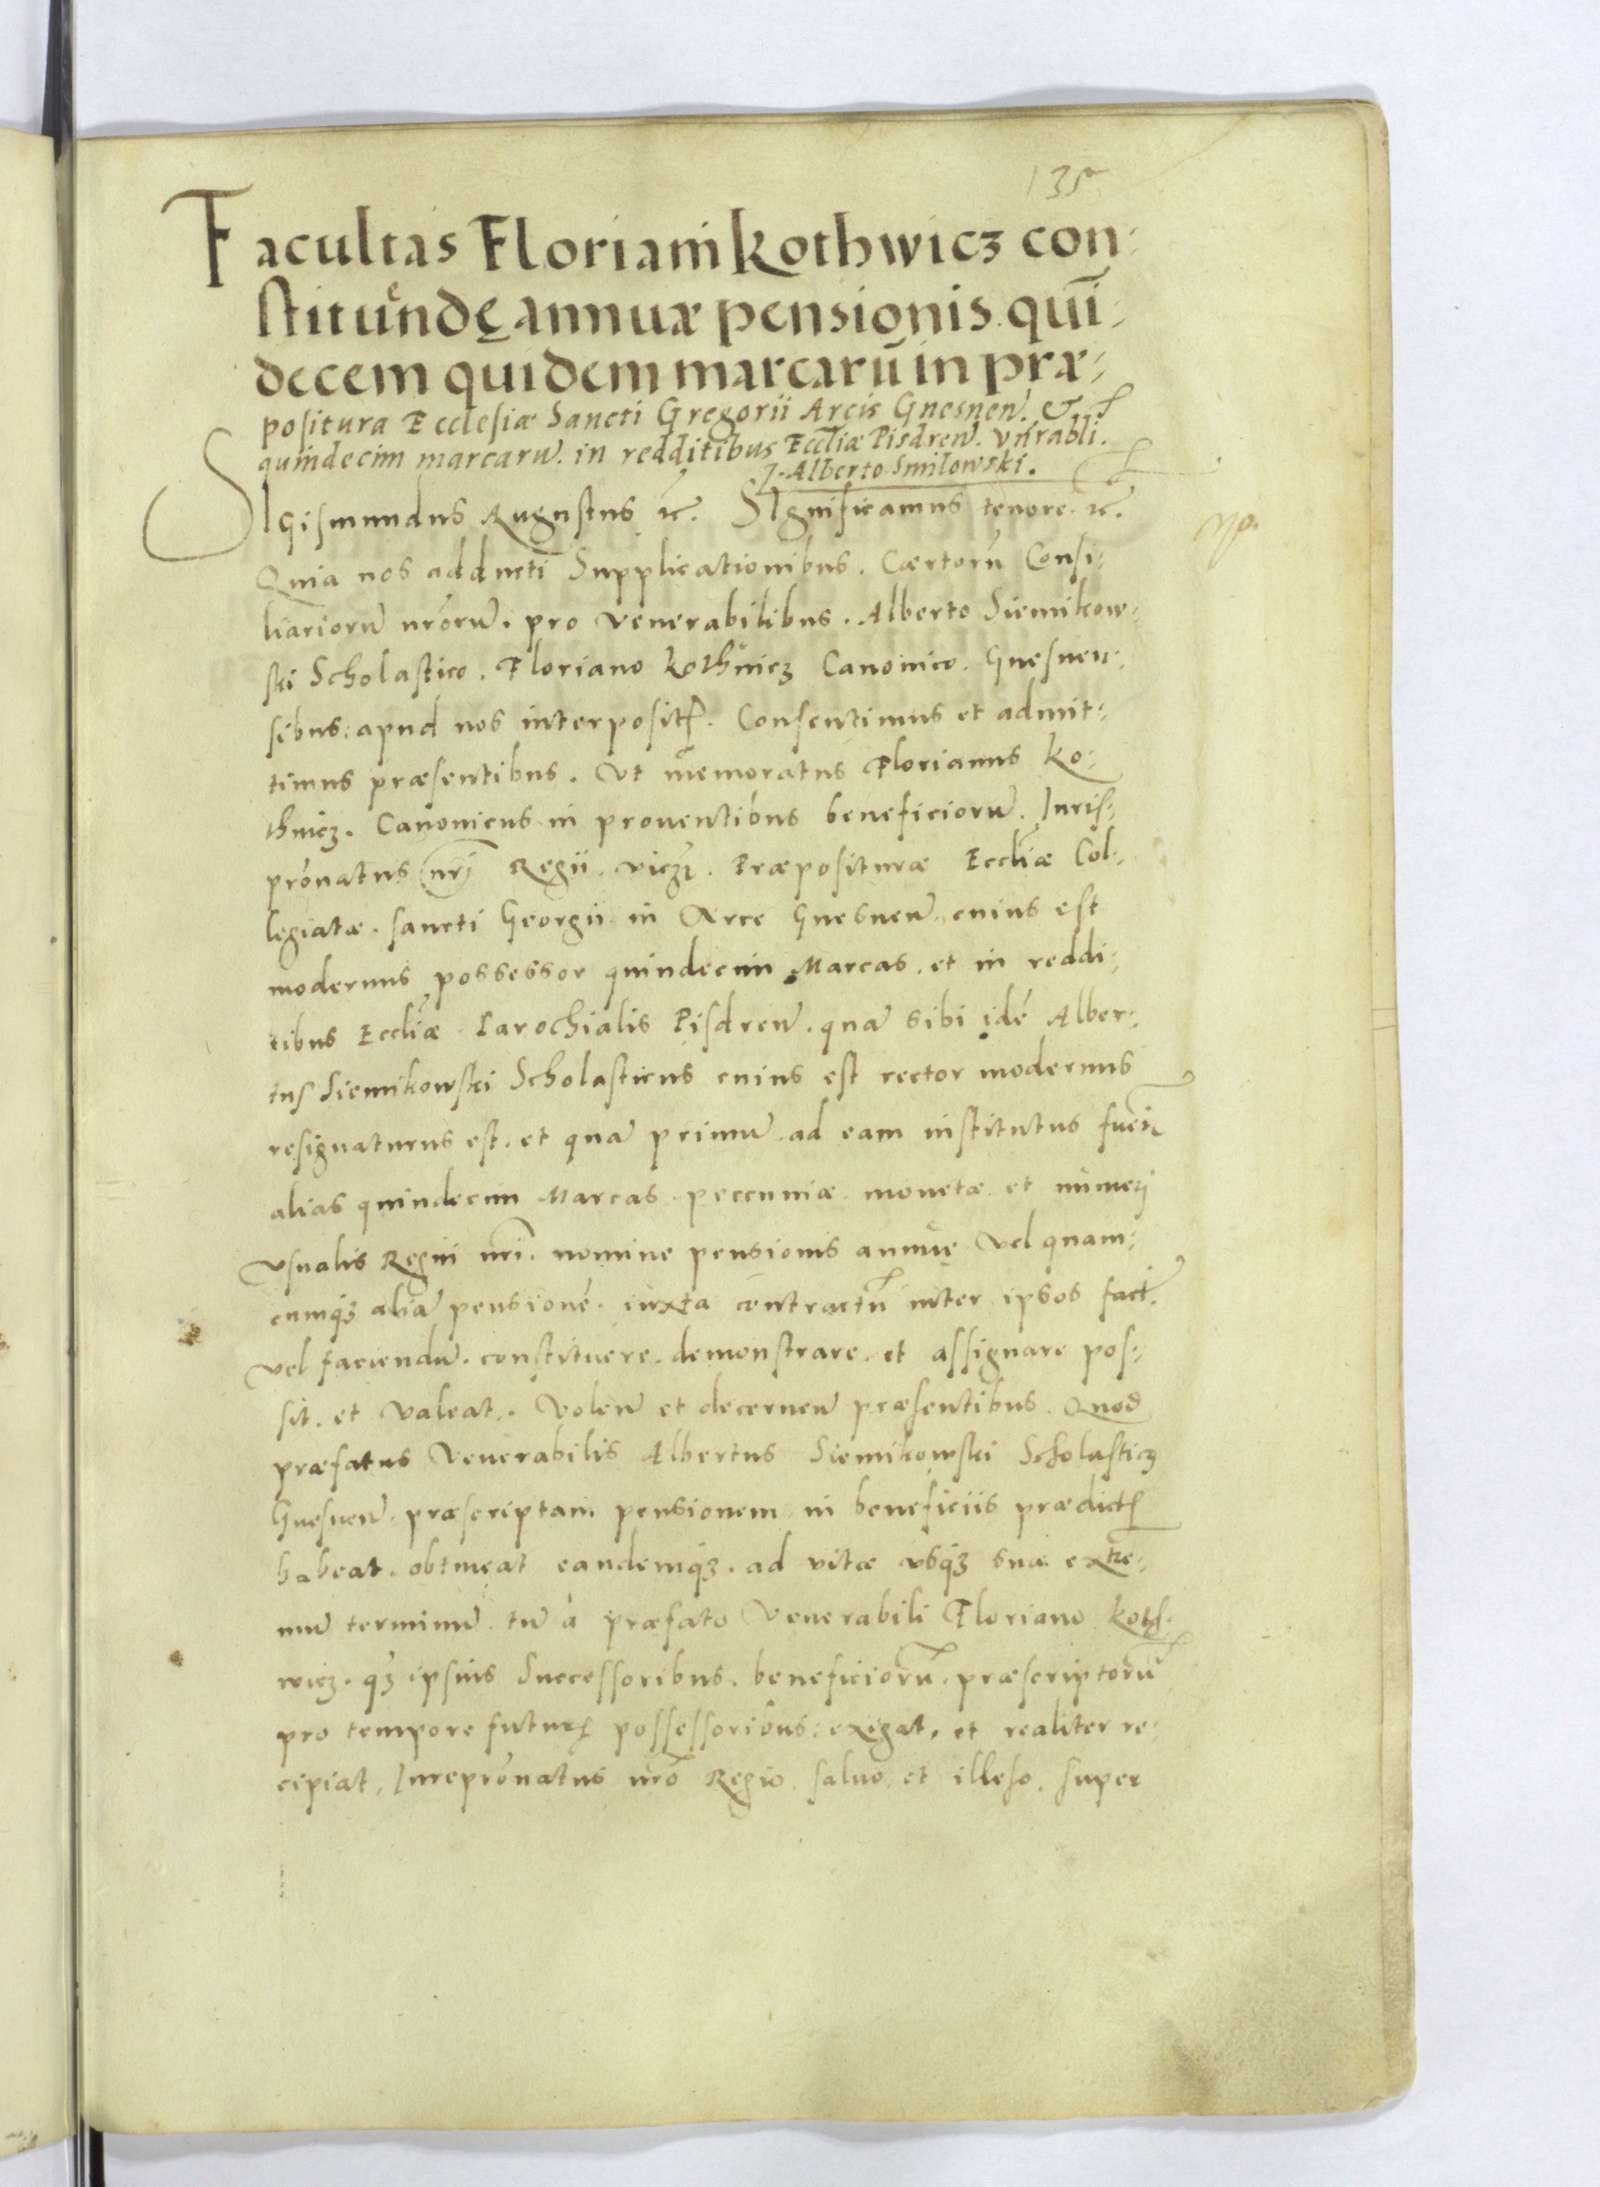 135
Facultas Floriani Kothwicz con:
stituendę annuæ pensionis quī:
decem quidem marcarū in præ:
positura Ecclesiæ Sancti Gregorii Arcis Gnesnen̄. &
quindecim marcarū. in redditibus Eccl̄iæ Pisdren̄. vn̄rabli.
Alberto Smilowski.
SIgismundus Augustus ꝛc. SIgnificamus tenore ꝛc.
Quia nos adducti Supplicationibus. Cærtorū Consi:
liariorū nr̄orū. pro venerabilibus. Alberto Siemikow:
ski Scholastico. Floriano Kothuicz Canonico. Gnesnen:
sibus: apud nos interposit. Consentimus et admit:
timus præsentibus. Vt memoratus Florianus Ko:
thuicz. Canonicus in prouentibus beneficiorū. Juris:
pr̄onatus nr̄i Regii. vicz. Præpositurae Eccl̄iæ Col:
legiatæ. sancti Georgii in Arce Gnesnen̄. cuius est
modernus possessor quindecim Marcas. et in reddi:
tibus Eccl̄iæ Parochialis Pisdren̄. quā sibi idē Alber:
tus Siemikowski Scholasticus cuius est rector modernus
resignaturus est. et quā primū ad eam institutus fueri̅t
alias quindecim Marcas peccuniæ monetæ et numeri
vsualis Regni nr̄i. nomine pensionis annuę Vel quam:
cumqꝫ aliā pensionē. iuxta contractū inter ipsos fact.
vel faciendū. constituere. demonstrare. et assignare pos:
sit. et valeat. Volen̄ et decernen̄ præsentibus. Quod
præfatus Venerabilis Albertus Siemikowski Scholasticꝫ
Gnesnen̄. præscriptam pensionem in beneficiis prædict
habeat. obtineat eandemqꝫ. ad vitæ vsqꝫ suæ extre:
mū terminū. tū à præfato Venerabili Floriano Koth:
wicz. qꝫ ipsius Successoribus. beneficiorū. præscriptorū
pro tempore futur possessoribus: exigat, et realiter re:
cipiat, Jurepr̄onatus nr̄o Regio saluo et illeso. super